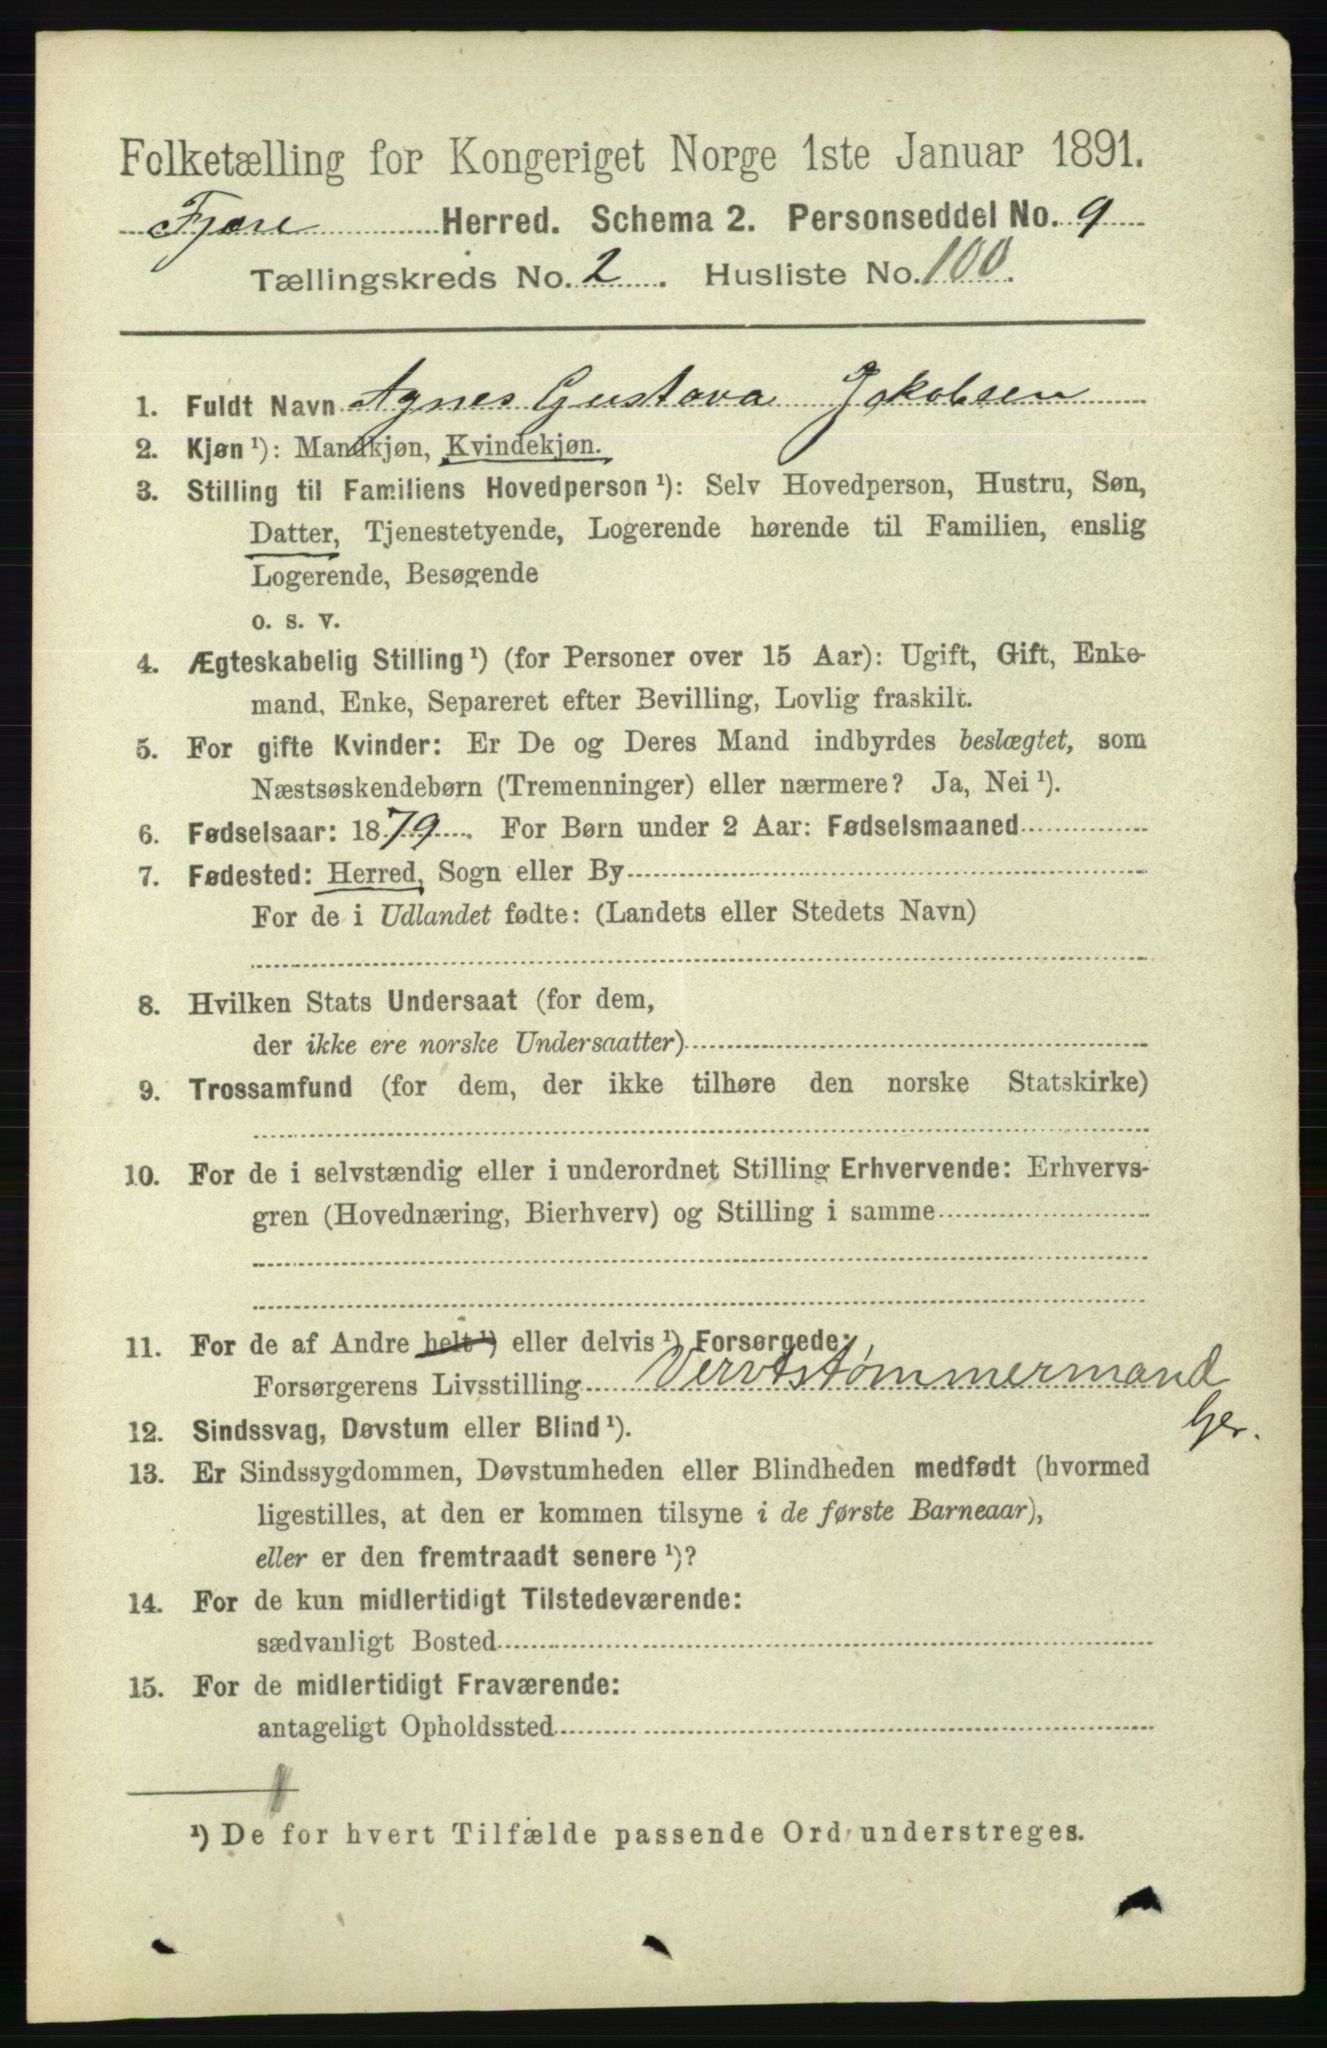 Folketælling for Kongeriget Norge 1ste Januar 1891.
Fjære Herred. Schema 2. Personseddel No. 9
Tællingskreds No. 2. Husliste No. 100.
1. Fuldt Navn Agnes Gustava Jakobsen
2. Kjøn ¹): Mandkjøn, Kvindekjøn.
3. Stilling til Familiens Hovedperson ¹): Selv Hovedperson, Hustru, Søn,
Datter, Tjenestetyende, Logerende hørende til Familien, enslig
Logerende, Besøgende
o. s. v.
4. Ægteskabelig Stilling ¹) (for Personer over 15 Aar): Ugift, Gift, Enke-
mand, Enke, Separeret efter Bevilling, Lovlig fraskilt.
5. For gifte Kvinder: Er De og Deres Mand indbyrdes beslægtet, som
Næstsøskendebørn (Tremenninger) eller nærmere? Ja, Nei ¹).
6. Fødselsaar: 1879. For Børn under 2 Aar: Fødselsmaaned
7. Fødested: Herred, Sogn eller By
For de i Udlandet fødte: (Landets eller Stedets Navn)
8. Hvilken Stats Undersaat (for dem,
der ikke ere norske Undersaatter)
9. Trossamfund (for dem, der ikke tilhøre den norske Statskirke)
10. For de i selvstændig eller i underordnet Stilling Erhvervende: Erhvervs-
gren (Hovednæring, Bierhverv) og Stilling i samme
11. For de af Andre helt ¹) eller delvis ¹) Forsørgede:
Forsørgerens Livsstilling Vervtstømmermand
12. Sindssvag, Døvstum eller Blind ¹).
13. Er Sindssygdommen, Døvstumheden eller Blindheden medfødt (hvormed
ligestilles, at den er kommen tilsyne i de første Barneaar),
eller er den fremtraadt senere ¹)?
14. For de kun midlertidigt Tilstedeværende:
sædvanligt Bosted
15. For de midlertidigt Fraværende:
antageligt Opholdssted
¹) De for hvert Tilfælde passende Ord understreges.